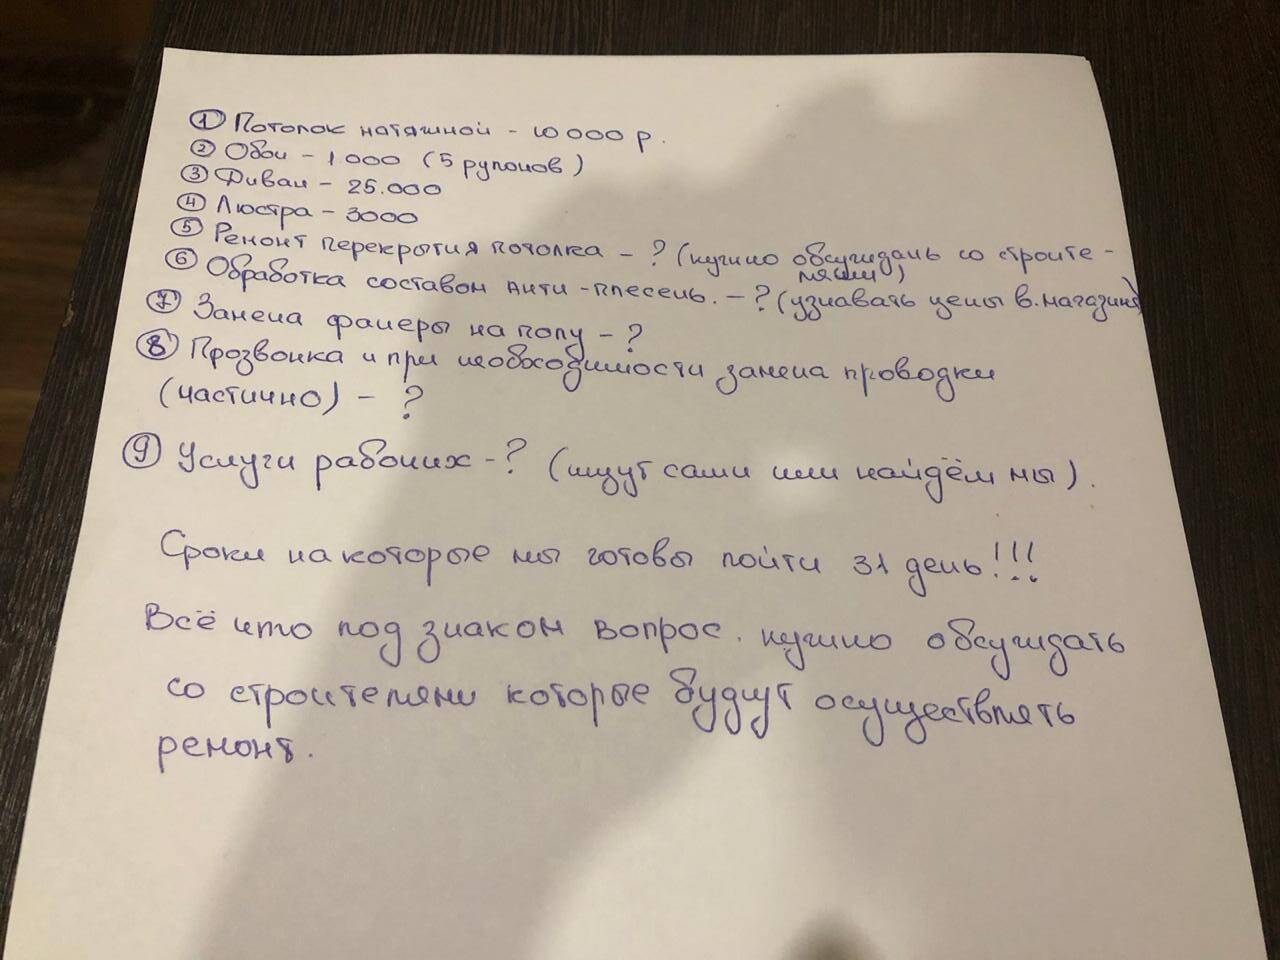 ① Потолок натяжной - 10 000 р.
② Обои - 1 000 (5 рулонов)
③ Диван - 25.000
④ Люстра - 3000
⑤ Ремонт перекрытия потолка - ? (нужно обсуждать со строите-
лями)
⑥ Обработка составом анти-плесень. - ? (узнавать цены в. магазине)
⑦ Замена фанеры на полу - ?
⑧ Прозвонка и при необходимости замена проводки
(частично) - ?
⑨ Услуги рабочих - ? (ищут сами или найдём мы).
Сроки на которые мы готовы пойти 31 день!!!
Всё что под знаком вопрос. нужно обсуждать
со строителями которые будут осуществлять
ремонт.